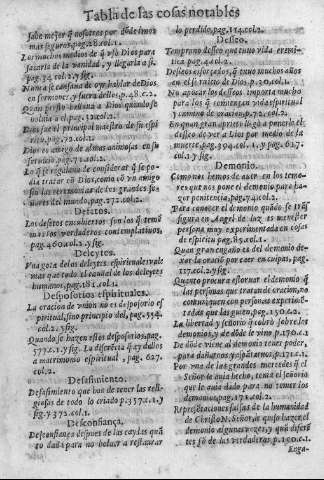 Tabla de las cosas notables
sabe mejor q̃ nosotros por dõde imos
mas seguros, pag.28.col.1.
Lo muchos medios q̃ usó Dios para
sacarla de la vanidad, y llegarla a si.
pag.34. col.2. y sig.
Nunca se cansava de oyr hablar de Dios
en sermones, y fuera dellos, p.48.c.2.
Quan presto bolvia a Dios quando se
pag.32.col.2.
Dios fue el principal maestro de su espi-
ritu, pag.72.col.2.
Dios es amigo de almas animosas en su
servicio, pag.71.col.1.
Lo q̃ se regalava de considerar q̃ se po-
dia tratar cõ Dios, como cõ vn amigo
sin las ceremonias de los grandes se-
ñores del mundo, pag.272.col.2.
Desseos.
Los desseos son los q̃ temã
mas los verdaderos contemplativos,
pag.460.col.2. y sig.
Deleytes.
Vna gota de los deleytes espirituales vale
mas que todo el caudal de los deleytes
humanos, pag.181.col.1.
Desposorios espirituales.
La oracion de vnion no es desposorio es
piritual, sino principio del, pag.554.
col.2. y sig.
Quando se hazen estos desposorios, pag.
577.c.1. y sig. La diferẽcia q̃ ay dellos
a matrimonio espiritual, pag. 627.
col.2.
Desasimiento.
Desasimiento que han de tener las reli-
giosas de todo lo criado p.357.c.1. y
sig. y 372.col.1.
Desconfiança.
Desconfiança despues de las caydas quã
to daña para no bolver a restaurar
lo perdido, pag.154.col.2.
Desseo.
Temprano desseo que tuvo vida eremi-
tica pag.4.col.2.
Desseos esforçados, q̃ tuvo muchos años
cõ el zelo de Dios, p.20.col.1.
No apocar los desseos importa mucho
para los q̃ comiençan vida espiritual
y camino de oracion, p.72.col.2.
En quan gran aprieto llega a ponerle el
desseo de ver a Dios por medio de la
muerte, pag.594.col.1. y pag.617.
col.1. y sig.
Demonio.
Como nos hemos de aver en los temo-
res que nos pone el demonio para ha-
zer penitencia, pag.74.col.2.
Para conocer el demonio quãdo se trãs
figura en Angel de luz es menester
persona muy experimentada en cosas
de espiritu, pag.85.col.1.
Quan gran engaño es del demonio de-
xar la oraciõ por caer en culpas, pag.
117.col.2. y sig.
Quanto procura estorvar el demonio q̃
las personas que tratan de oraciõ, no
comuniquen con personas experimẽ-
tadas que las guien, pag.150.c.2.
La libertad y señorio q̃ cobrò sobre los
demonios, y de dõde le vino p.170.c.1.
De dõde viene al demonio tener poder,
para dañarnos y espãtarnos, p.171.c.1.
Por vna de las grandes mercedes q̃ el
Señor le avia hecho, tenia el señorio
que le avia dado para no temer los
demonios, pag.171.col.2.
Representaciones falsas de la humanidad
de Christo N. Señor, q̃ quiso hazer el
demonio algunas vezes, y quã diferẽ
tes sõ de las verdaderas. p.190.c.1.
Enga-